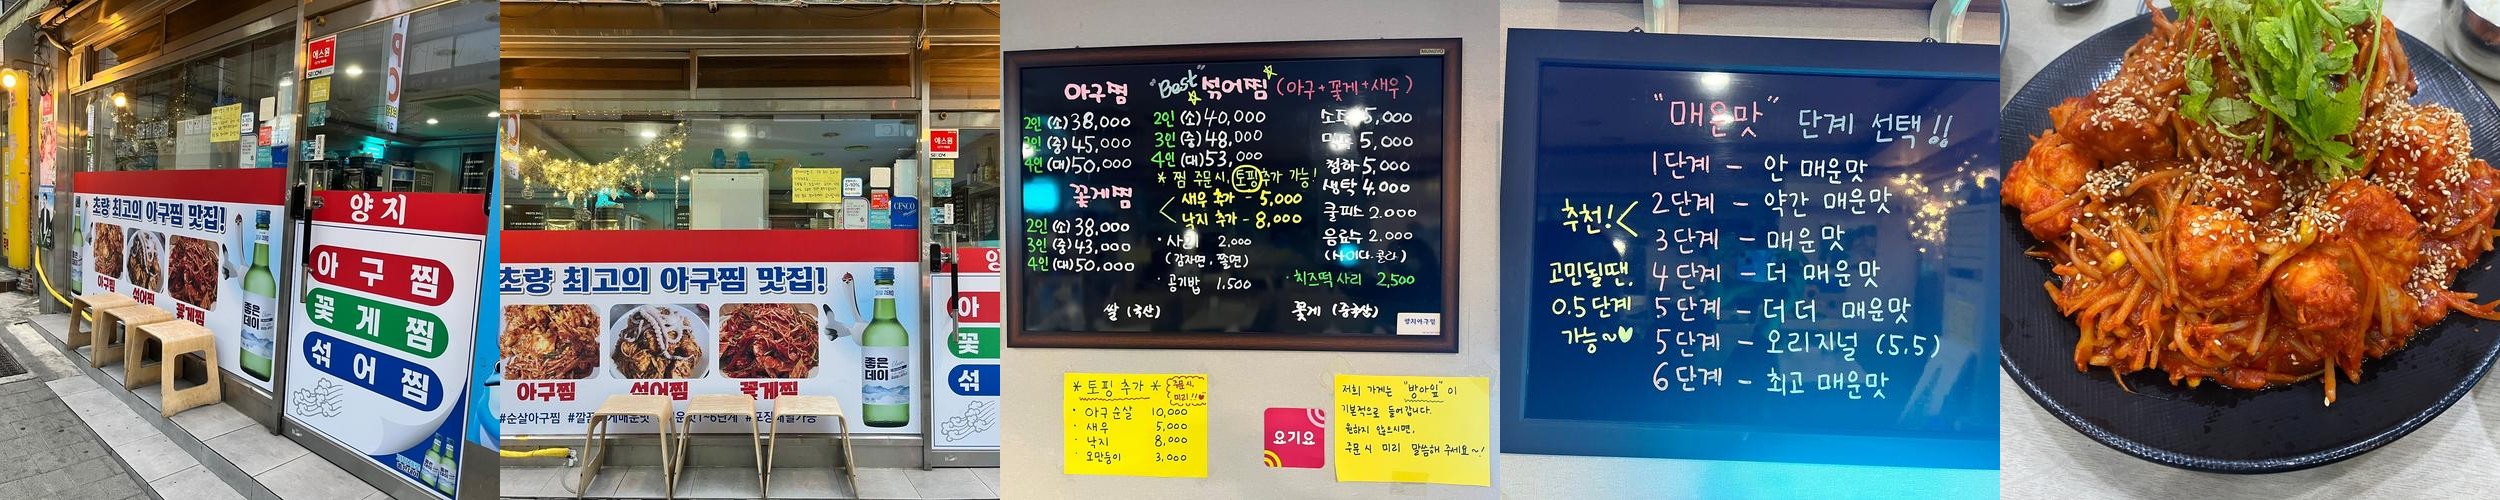 에스원
SECOM
초량 최고의 아구찜 맛집!
아구찜
섞어찜
꽃게찜
좋은
데이
양지
아구찜
꽃게찜
섞어찜
에스원
SECOM
CESCO
초량 최고의 아구찜 맛집!
아구찜
섞어찜
꽃게찜
좋은
데이
#순살아구찜
아
꽃
섞
MUNGYO
아구찜
2인 (소) 38,000
3인 (중) 45,000
4인 (대) 50,000
꽃게찜
2인 (소) 38,000
3인 (중) 43,000
4인 (대) 50,000
"Best" 섞어찜 (아구+꽃게+새우)
2인 (소) 40,000
3인 (중) 48,000
4인 (대) 53,000
* 찜 주문시, 토핑추가 가능!
새우 추가 - 5,000
낙지 추가 - 8,000
· 사리 2,000
(감자면, 쫄면)
· 공기밥 1,500
5,000
5,000
청하 5,000
생탁 4,000
쿨피스 2,000
음료수 2,000
(사이다.콜라)
· 치즈떡 사리 2,500
쌀 (국산)
꽃게 (중국산)
양지아구찜
* 토핑 추가 *
주문시,
미리!!
· 아구순살 10,000
· 새우 5,000
· 낙지 8,000
· 오만둥이 3,000
요기요
저희 가게는 "방아잎"이
기본적으로 들어갑니다.
원하지 않으시면,
주문시 미리 말씀해 주세요~!
"매운맛" 단계 선택!!
1단계 - 안 매운맛
2단계 - 약간 매운맛
3단계 - 매운맛
4단계 - 더 매운맛
5단계 - 더더 매운맛
5단계 - 오리지널 (5.5)
6단계 - 최고 매운맛
추천!
고민될땐,
0.5단계
가능~♥